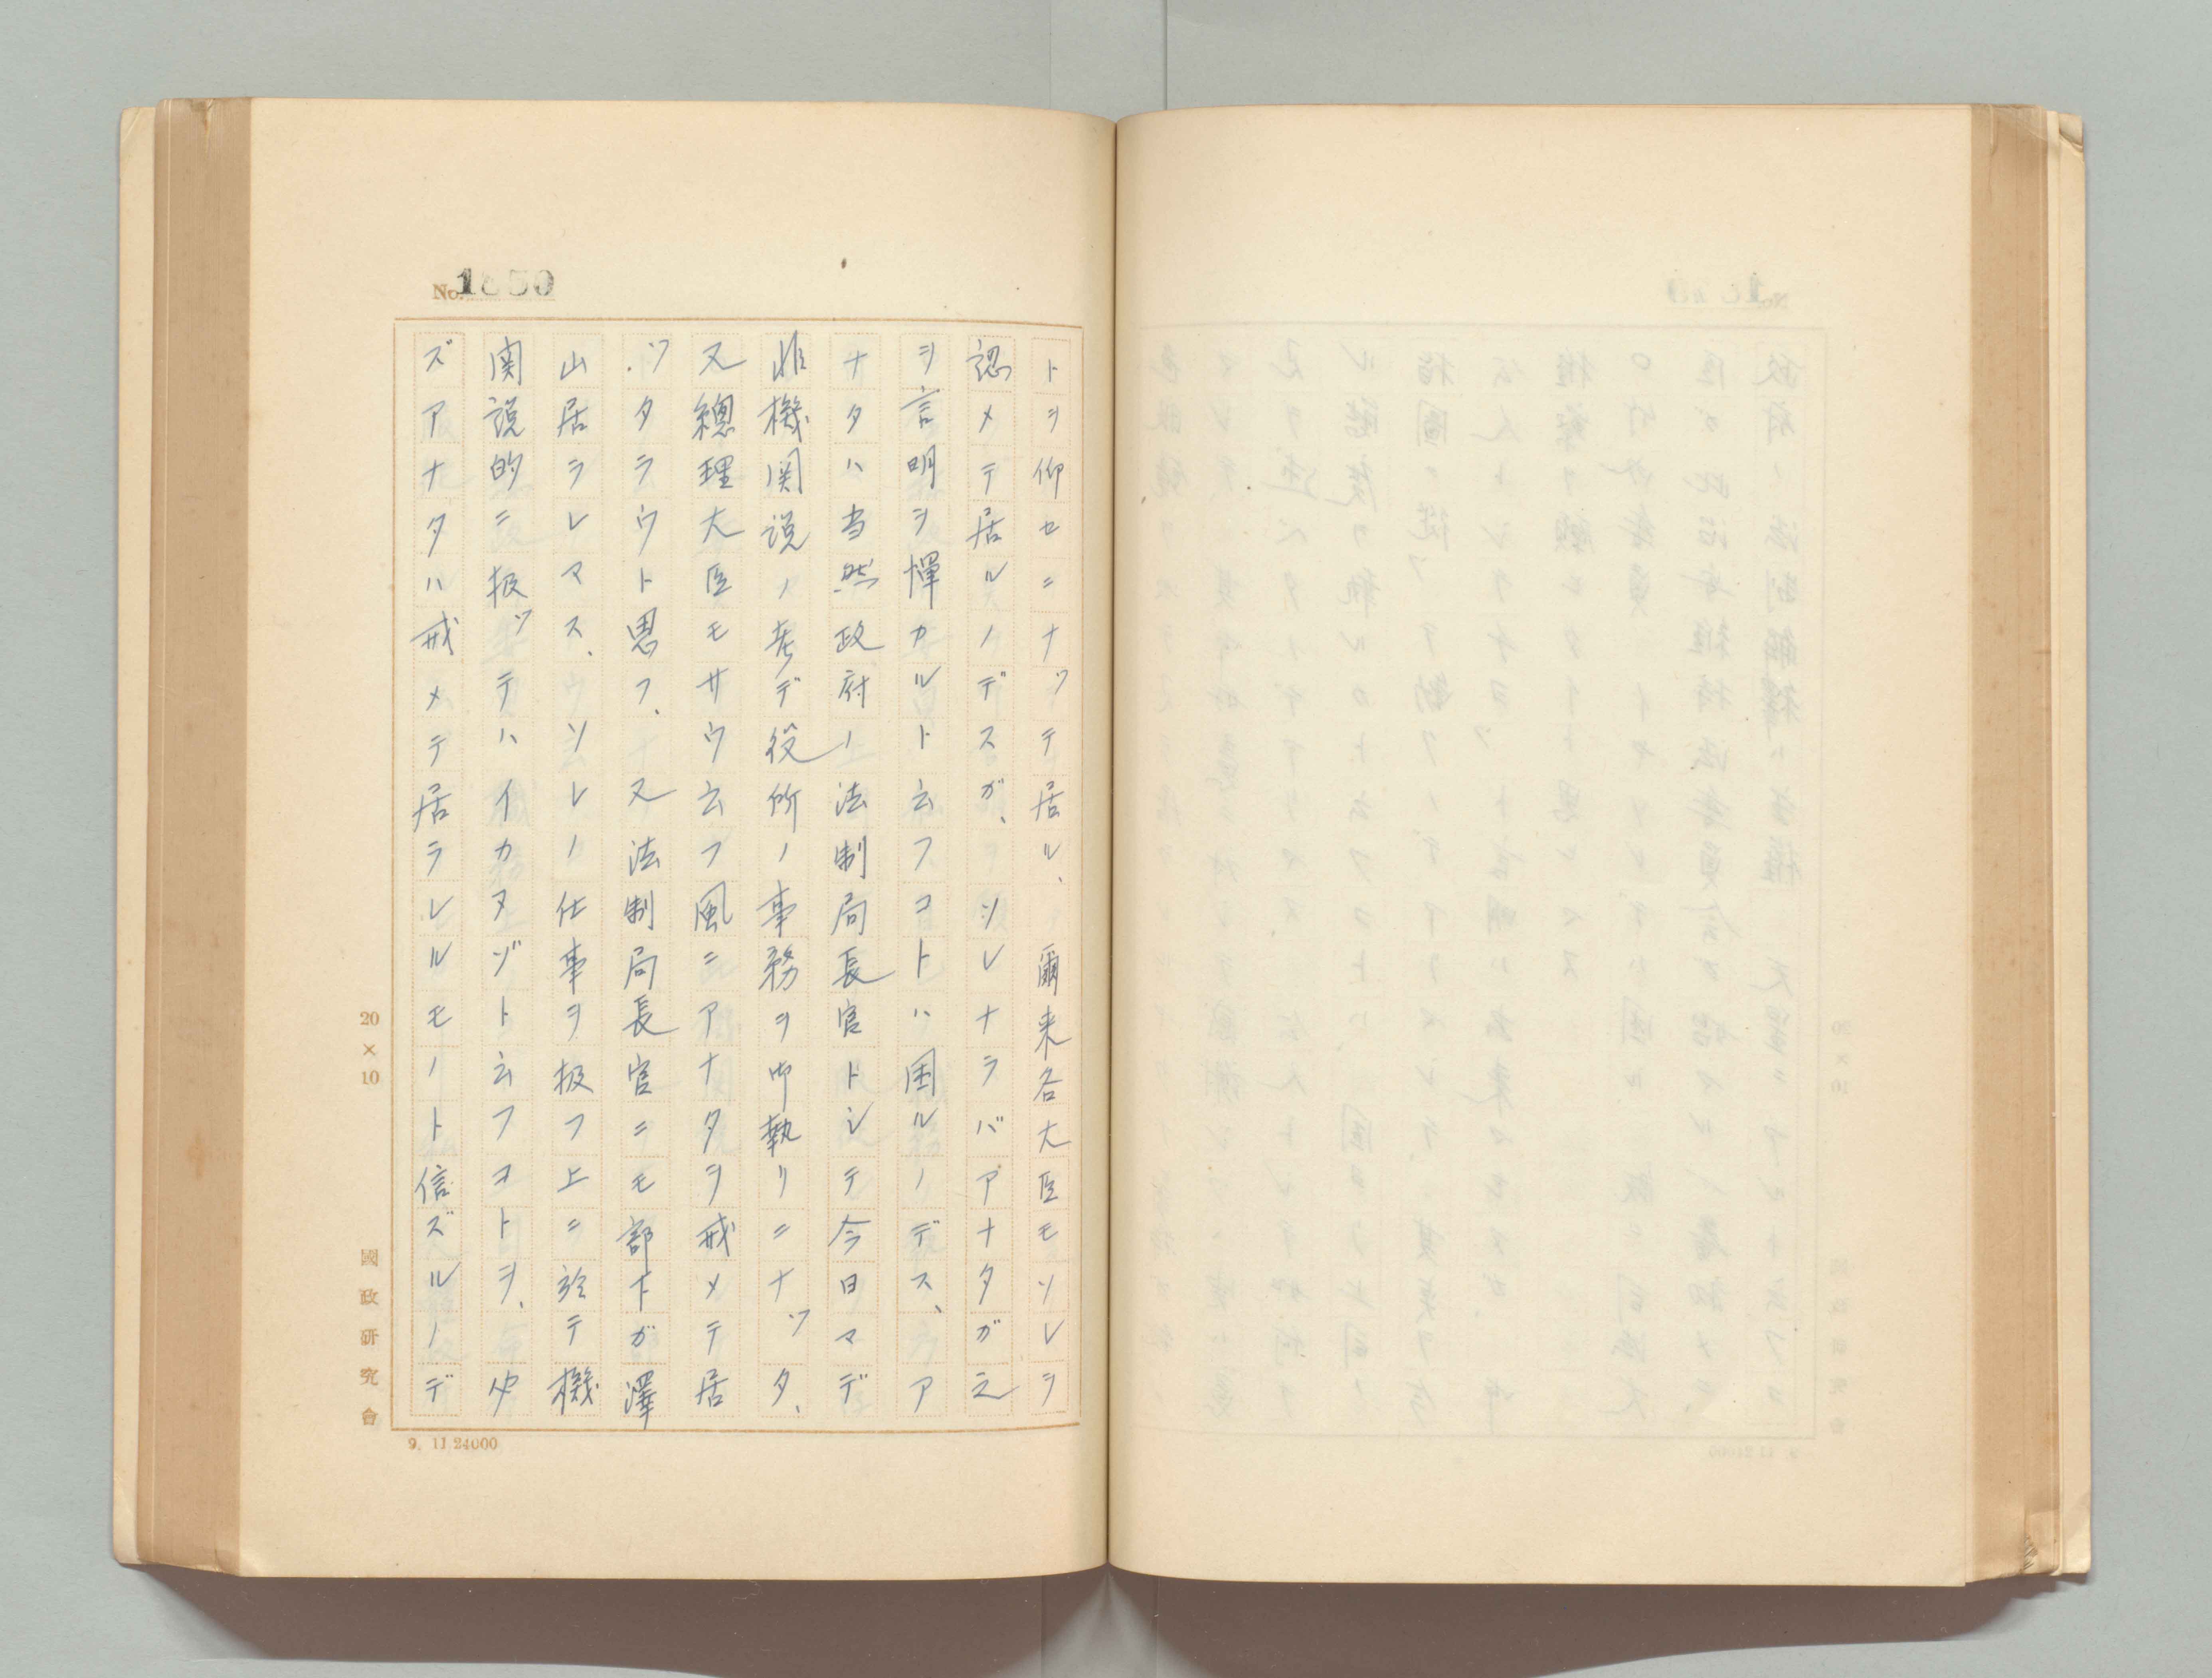 No. 1850
トヲ仰セニナッテ居ル、爾来各大臣モソレヲ
認メテ居ルノデスガ、ソレナラバアナタガ之
ヲ言明ヲ憚カルト云フコトハ困ルノデス、ア
ナタハ当然政府ノ法制局長官トシテ今日マデ
非機関説ノ考デ役所ノ事務ヲ御執リニナッタ、
又總理大臣モサウ云フ風ニアナタヲ戒メテ居
ッタラウト思フ、又法制局長官ニモ部下ガ澤
山居ラレマス、ソレノ仕事ヲ扱フ上ニ於テ機
関説的ニ扱ッテハイカヌゾト云フコトヲ、必
ズアナタハ戒メテ居ラレルモノト信ズルノデ
20×10
國政研究會
9. 11 24000